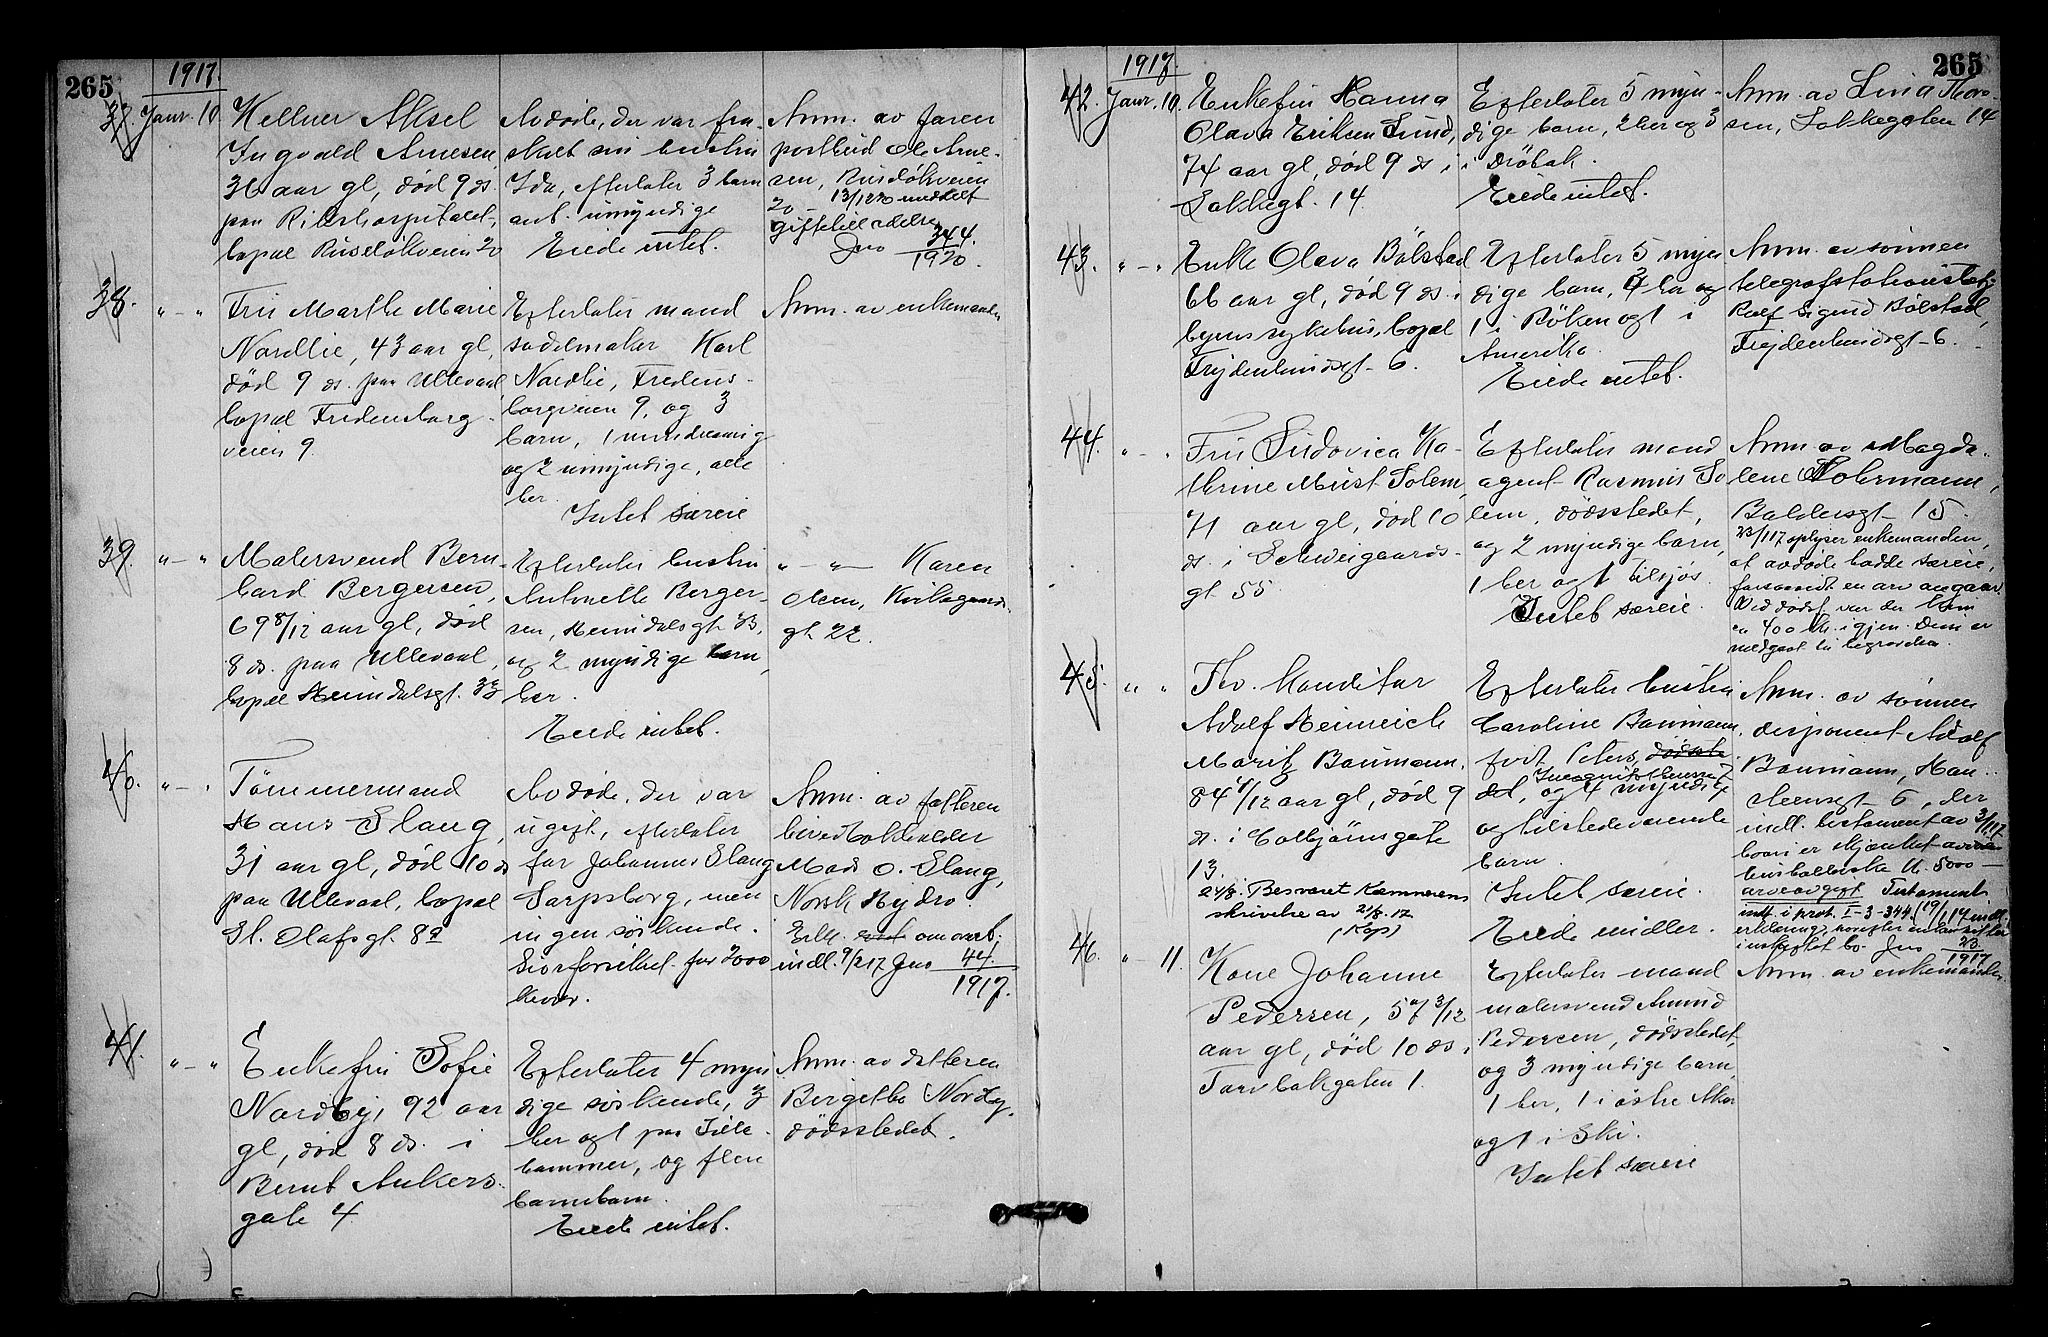 265
1917.
37. Janr. 10.
Kellner Aksel
Ingvald Arnesen
36 aar gl, død 9 ds.
paa Rikshospitalet,
bopæl Ruseløkveien 20
Avdøde, der var fra-
skilt sin hustru
Ida, efterlater 3 barn
ant. umyndige
Eiede intet.
Anm. av faren
postbud Ole Arne-
sen, Ruseløkveien
20 - 13/12 20 meddelt
giftetilladelse
Jno 344.
1920.
38. " - "
Fru Marthe Marie
Nordlie, 43 aar gl,
død 9 ds. paa Ullevaal
bopæl Fredensborg-
veien 9.
Efterlater mand
sadelmaker Karl
Nordlie, Fredens-
borgveien 9, og 3
barn, 1 mindreaarig
og 2 umyndige, alle
her.
Intet særeie
Anm. av enkemanden
39. " - "
Malersvend Bern-
hard Bergersen,
69 8/12 aar gl, død
8 ds. paa Ullevaal,
bopæl Heimdalsgt. 33
Efterlater hustru
Antonette Berger-
sen, Heimdalsgt. 33,
og 2 myndige barn,
her.
Eiede intet.
" - " Karen
Olsen,
gt. 22.
40. " - "
Tømmermand
Hans Slang,
31 aar gl, død 10 ds
paa Ullevaal, bopæl
St. Olafsgt. 8a
Avdøde, der var
ugift, efterlater
far Johannes Slang
Sarpsborg, men
ingen søskende.
Livsforsikret for 2000
kroner.
Anm. av fætteren
Mads O. Slang,
Norsk Hydro.
Erkl. om overt.
indl. 9/2 17 Jno 44.
1917.
41. " - "
Enkefru Sofie
Nordby, 92 aar
gl, død 8 ds. i
Bernt Ankers
gate 4.
Efterlater 4 myn
dige søskende, 3
her og 1 paa Lille-
hammer, og flere
barnebarn.
Eiede intet.
Anm. av datteren
Bergithe Nordby,
dødsstedet.
265
1917.
42. Janr. 10.
Enkefru Hanna
Olava Eriksen Lund,
74 aar gl, død 9 ds i
Lakkegt. 14
Efterlater 5 myn-
dige barn, 2 her og 3
i Drøbak.
Eiede intet.
Anm. av Lina Thor-
sen, Lakkegaten 14
43. " - "
Enke Olava Bølstad
66 aar gl, død 9 ds. i
byens sykehus, bopæl
Frydenlundsgt. 6.
Efterlater 5 myn
dige barn, 3 her og
1 i Røken og 1 i
Amerika.
Eiede intet.
Anm. av sønnen
Rolf Sigurd Bølstad,
Frydenlundsgt. 6.
44. " - "
Fru Ludovica Ka-
thrine Must Solem,
71 aar gl, død 10
ds. i Schweigaards-
gt. 55.
Efterlater mand
agent Rasmus So
lem, dødsstedet,
og 2 myndige barn,
1 her og 1 tilsjøs.
Intet særeie.
Anm. av Magda-
lene Nohrmann,
Baldersgt. 15.
23/1 17 oplyser enkemanden,
at avdøde hadde særeie,
forsaavidt en arv angaar.
Ved dødsf. var der
ca 400 kr. igjen. Dem er
medgaat til begravelsen.
45. " "
Fhv. Konditor
Adolf Heinrich
Moritz Baumann.
84 1/12 aar gl, død 9
ds. i Colbjørnsgate
13.
24/8. Besvaret Kæmnerens
skrivelse av 21/8. 17
(Kop)
Efterlater hustru
Caroline Baumann
født Peters, dødsste
det, og 4 myndige
og tilstedeværende
barn.
Intet særeie.
Eiede midler.
Anm. av sønnen
disponent Adolf
Baumann,
6, der
indl. testament av 3/1 17
hvori er skjænket
Kr. 5000 -
arveavgift Testament
indt. i prot. I - 3 - 344. (19/1 17 indl.
erklæring,
i uskiftet bo. Jno 23.
1917
46. " - 11.
Kone Johanne
Pedersen, 57 3/12
aar gl, død 10 ds. i
Torvbakgaten 1.
Efterlater mand
malersvend Amund
Pedersen, dødsstedet,
og 3 myndige barn,
1 her, 1 i østre Aker
og 1 i Ski.
Intet særeie
Anm. av enkemanden.